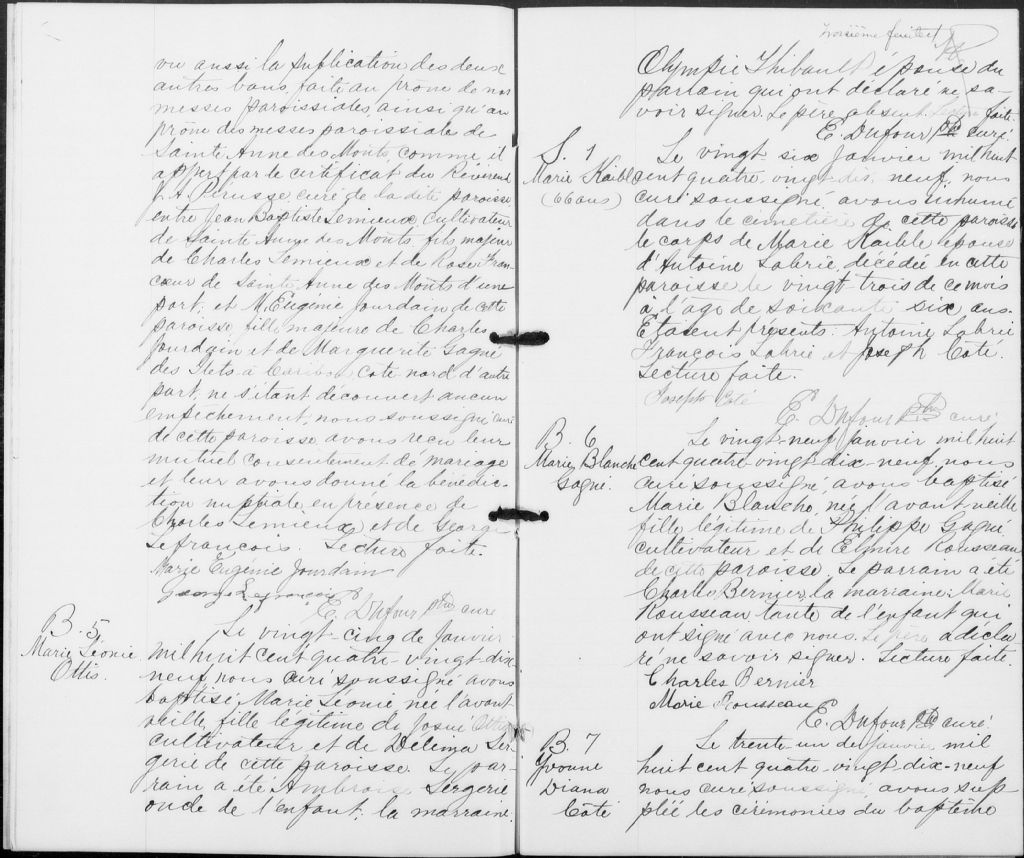 vu aussi la publication des deux
autres bans, faite au prône de nos
messes paroissiales, ainsi qu'au
prône des messes paroissiale de
Sainte Anne des Monts comme il
appert par le certificat du Révérend
J. A. Pérusse, curé de la dite paroisse
entre Jean Baptiste Lemieux cultivateur
de Sainte Anne des Monts, fils majeur
de Charles Lemieux et de Rose Fran-
coeur de Sainte Anne des Monts d'une
part; et M. Eugénie Jourdain de cette
paroisse fille majeure de Charles
Jourdain et de Marguerite Gagné
des Ilets à Caribou, côte nord d'autre
part, ne s'étant découvert aucun
empêchement, nous soussigné curé
de cette paroisse avons reçu leur
mutuel consentement de mariage
et leur avons donné la bénédic-
tion nuptiale en présence de
Charles Lemieux et de George
Lefrancois. Lecture faite.
Marie Eugénie Jourdain
George Lefrancois
E. Dufour ptre curé
B. 5
Marie Léonie
Ottis.
Le vingt-cinq de janvier
mil huit cent quatre-vingt-dix
neuf nous curé soussigné avons
baptisé Marie Léonie née l'avant
veille, fille légitime de Josué Ottis
cultivateur et de Delima Ser-
gerie de cette paroisse. Le par-
rain a été Ambroise Sergerie
oncle de l'enfant; la marraine
troisième feuillet
Olympie Thibault épouse du
parrain qui ont déclaré ne sa-
voir signer. Le père absent. Lecture faite.
E. Dufour ptre curé
S. 1
Marie Kaible
(66 ans)
Le vingt-six janvier mil huit
cent quatre-vingt-dix-neuf, nous
curé soussigné, avons inhumé
dans le cimetière de cette paroisse
le corps de Marie Kaible épouse
d'Antoine Labrie, décédée en cette
paroisse le vingt trois de ce mois
à l'âge de soixante six ans.
Etaient présents: Antoine Labrie
François Labrie et Joseph Côté.
Lecture faite.
Joseph Coté
E. Dufour ptre curé
B. 6
Marie Blanche
Gagné.
Le vingt-neuf janvier mil huit
cent quatre-vingt-dix-neuf, nous
curé soussigné, avons baptisé
Marie Blanche, née l'avant veille
fille légitime de Philippe Gagné
cultivateur et de Elmire Rousseau
de cette paroisse. Le parrain a été
Charles Bernier, la marraine: Marie
Rousseau tante de l'enfant qui
ont signé avec nous. Le père a décla-
ré ne savoir signer. Lecture faite.
Charles Bernier
Marie Rousseau
E. Dufour ptre curé
B. 7
Yvonne
Diana
Côté
Le trente-un de janvier mil
huit cent quatre-vingt-dix-neuf
nous curé soussigné, avons sup-
pléé les cérémonies du baptême